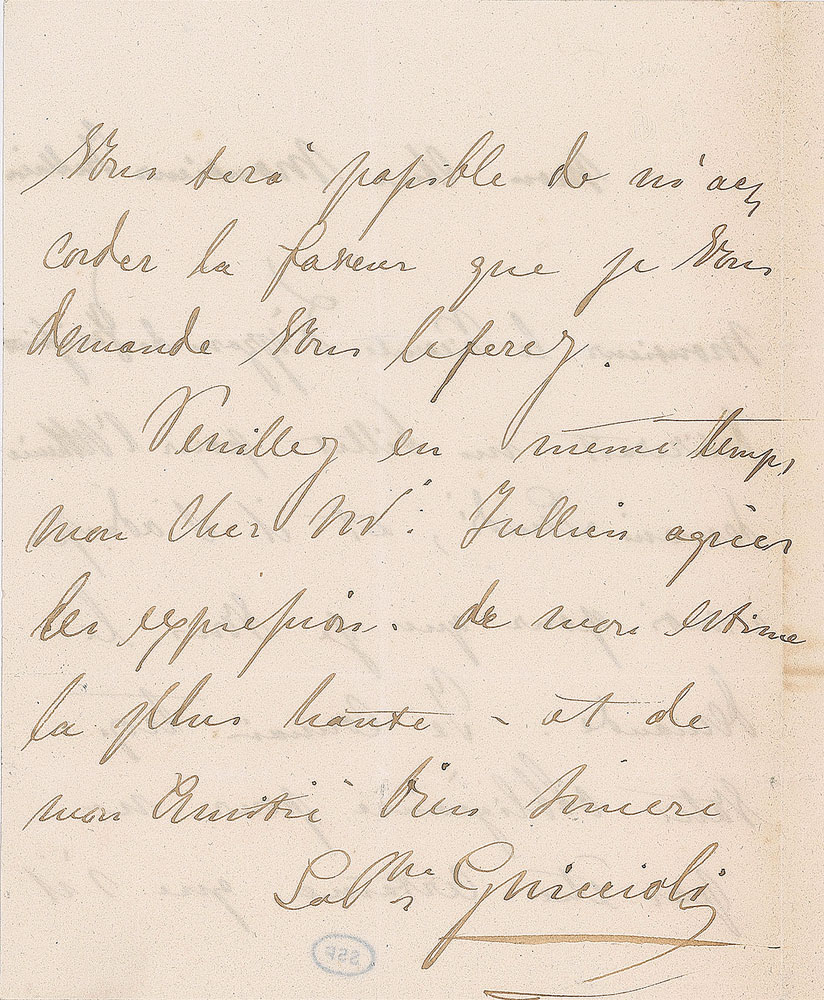 Vous sera possible de m'ac,
corder la faveur que je Vous
demande Vous leferez.
Veuillez en même temps,
mon Cher Mr. Jullien agréer
les expression. de mon estime
la plus haute - et de
mon Amitié bien sincere
Guiccioli
SSF